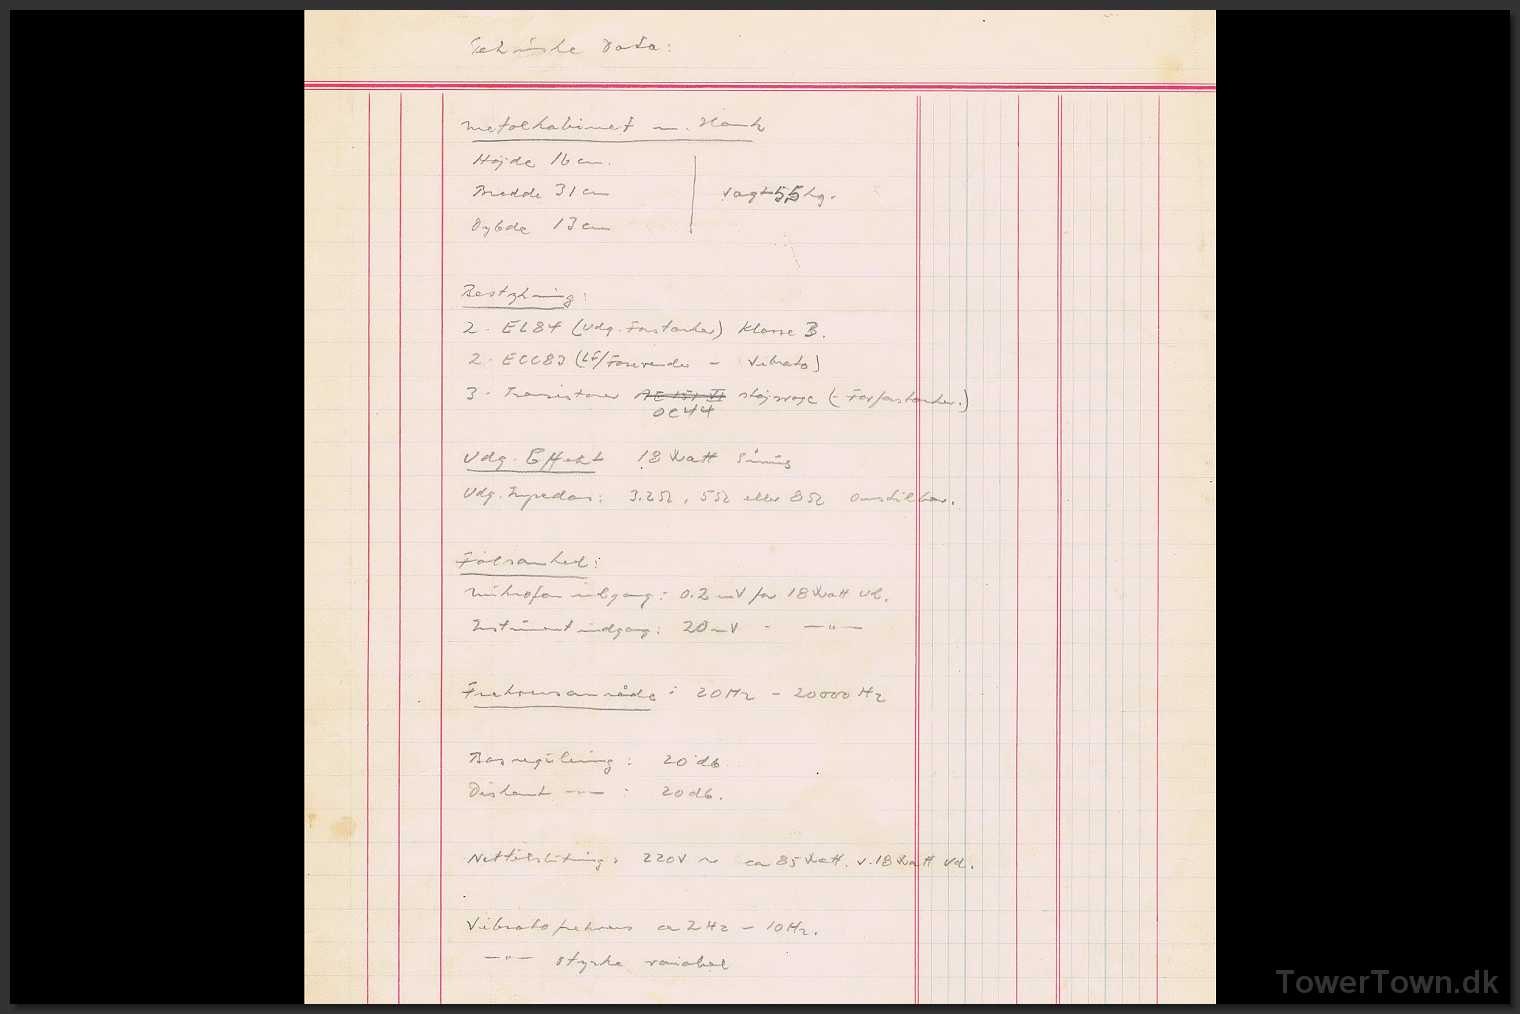 Tekniske Data:
Metalkabinet m. Hank
Højde 16 cm.
Bredde 31 cm vagt 5,5 kg.
Dybde 13 cm
Bestykning:
2 - EL84 (Udg. Forstærker) Klasse B.
2 - ECC83 (LF/Fasevender - Vibrato)
3 - Transistorer støjsvage (- Forforstærker.)
OC44
Udg. Effekt 18 Watt Sinus
Udg. Impedans: 3.2Ω, 5Ω eller 8Ω omstilbar.
Følsomhed:
Mikrofon indgang: 0.2 mV for 18 Watt ud.
Instrument indgang: 20 mV - —"—
Frekvensområde: 20 Hz - 20000 Hz
Basregulering: 20 db
Diskant —"— : 20 db.
Nettilslutning: 220V ~ ca 85 Watt. v. 18 Watt ud.
Vibratofrekvens ca 2 Hz - 10 Hz.
—"— styrke variabel
TowerTown.dk